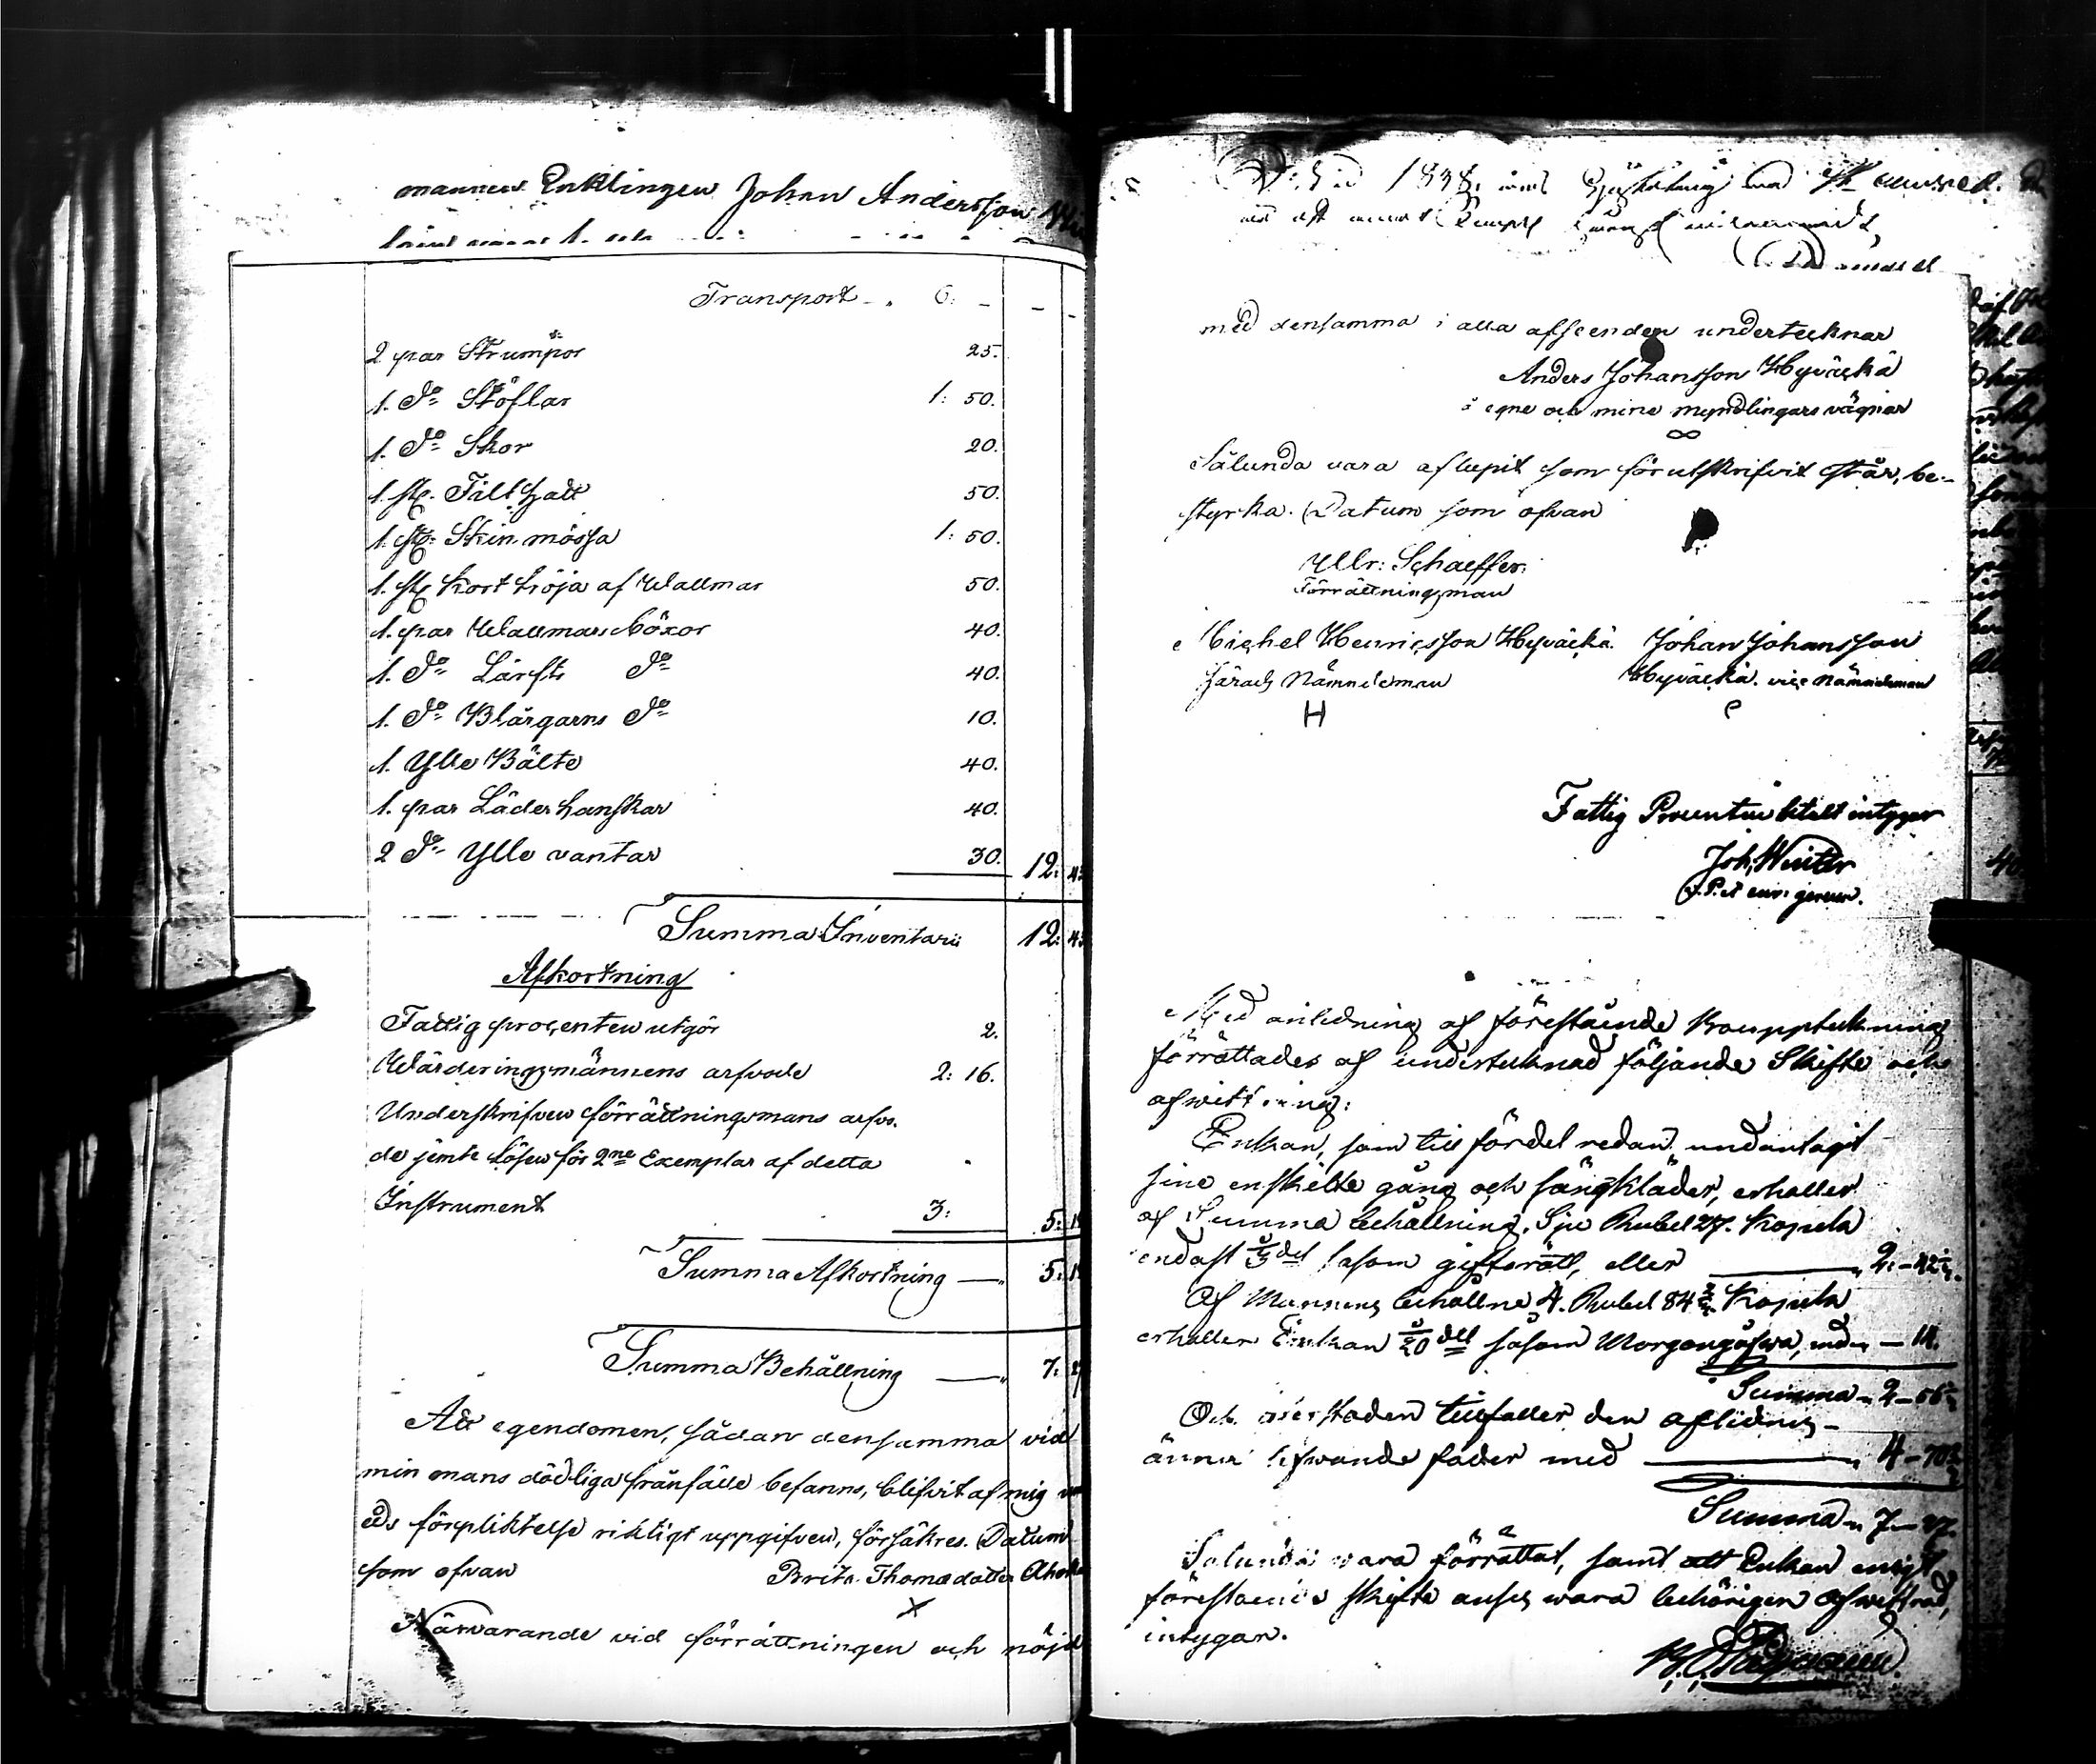 mannen Enklingen Johan Andersson
Transport - „ 6: -
2 par Strumpor 25.
1. do Stöflar 1: 50.
1. do Skor 20.
1. st. Filt hatt 50.
1. st. Skin mössa 1: 50.
1. st. kort tröja af Wallmar 50.
1. par Wallmars böxor 40.
1. do Lärfts do 40.
1. do Blårgarns do 10.
1. Ylle Bälte 40.
1. par Läder hanskar 40.
2 do Ylle vantar 30. 12:
Summa Inventarii 12:
Afkortning
Fattig procenten utgör 2.
Wärderingsmännens arfvode 2: 16.
Underskrifven förrättningsmans arfvo-
de jemte Lösen för 2ne Exemplar af detta
Instrument 3: 5:
Summa Afkortning — „ 5:
Summa Behållning — „ 7:
Att egendomen, sådan densamma vid
min mans dödliga frånfälle befanns, blifvit af mig
eds förpliktelse riktigt uppgifven, försäkres. Datum
som ofvan Brita Thomadotter
X
Närvarande vid förrättningen och nöjd
1838.
med densamma i alla afseenden undertecknar
Anders Johansson Hyväckä
i egne och mine myndlingars vägnar
Sålunda vara aflupit som förutskrifvit står, be-
styrka. Datum som ofvan
Schaeffer.
Förrättningsman
Michel Henricsson Hyväckä. Johan Johansson
Härads Nämndeman Hyväckä. vice Nämndeman
H
Fattig Procenten betalt intygar
Joh. Winter
Med anledning af förestående Bouppteckning
förrättades af undertecknad följande Skifte och
afwittring:
Enkan, som till fördel redan undantagit
sine enskilte gång och sängkläder, erhåller
af Summa behållning, Sju Rubel 27. Kopeka
endast 1/3 del såsom giftorätt, eller — „ 2. - 42 1/3.
Af Mannens behållne 4. Rubel 84 2/3 Kopeka
erhåller Enkan 1/20 del såsom Morgongåfwa, med „ - 14.
Summa „ 2 - 56 1/3
Och återstoden tillfaller den aflidnes
ännu lefwande fader med — „ 4 - 70 2/3
Summa „ 7 - 27.
Sålunda wara förrättat, samt att Enkan enligt
förestående skifte anses wara behörigen afwittrad,
intygar.